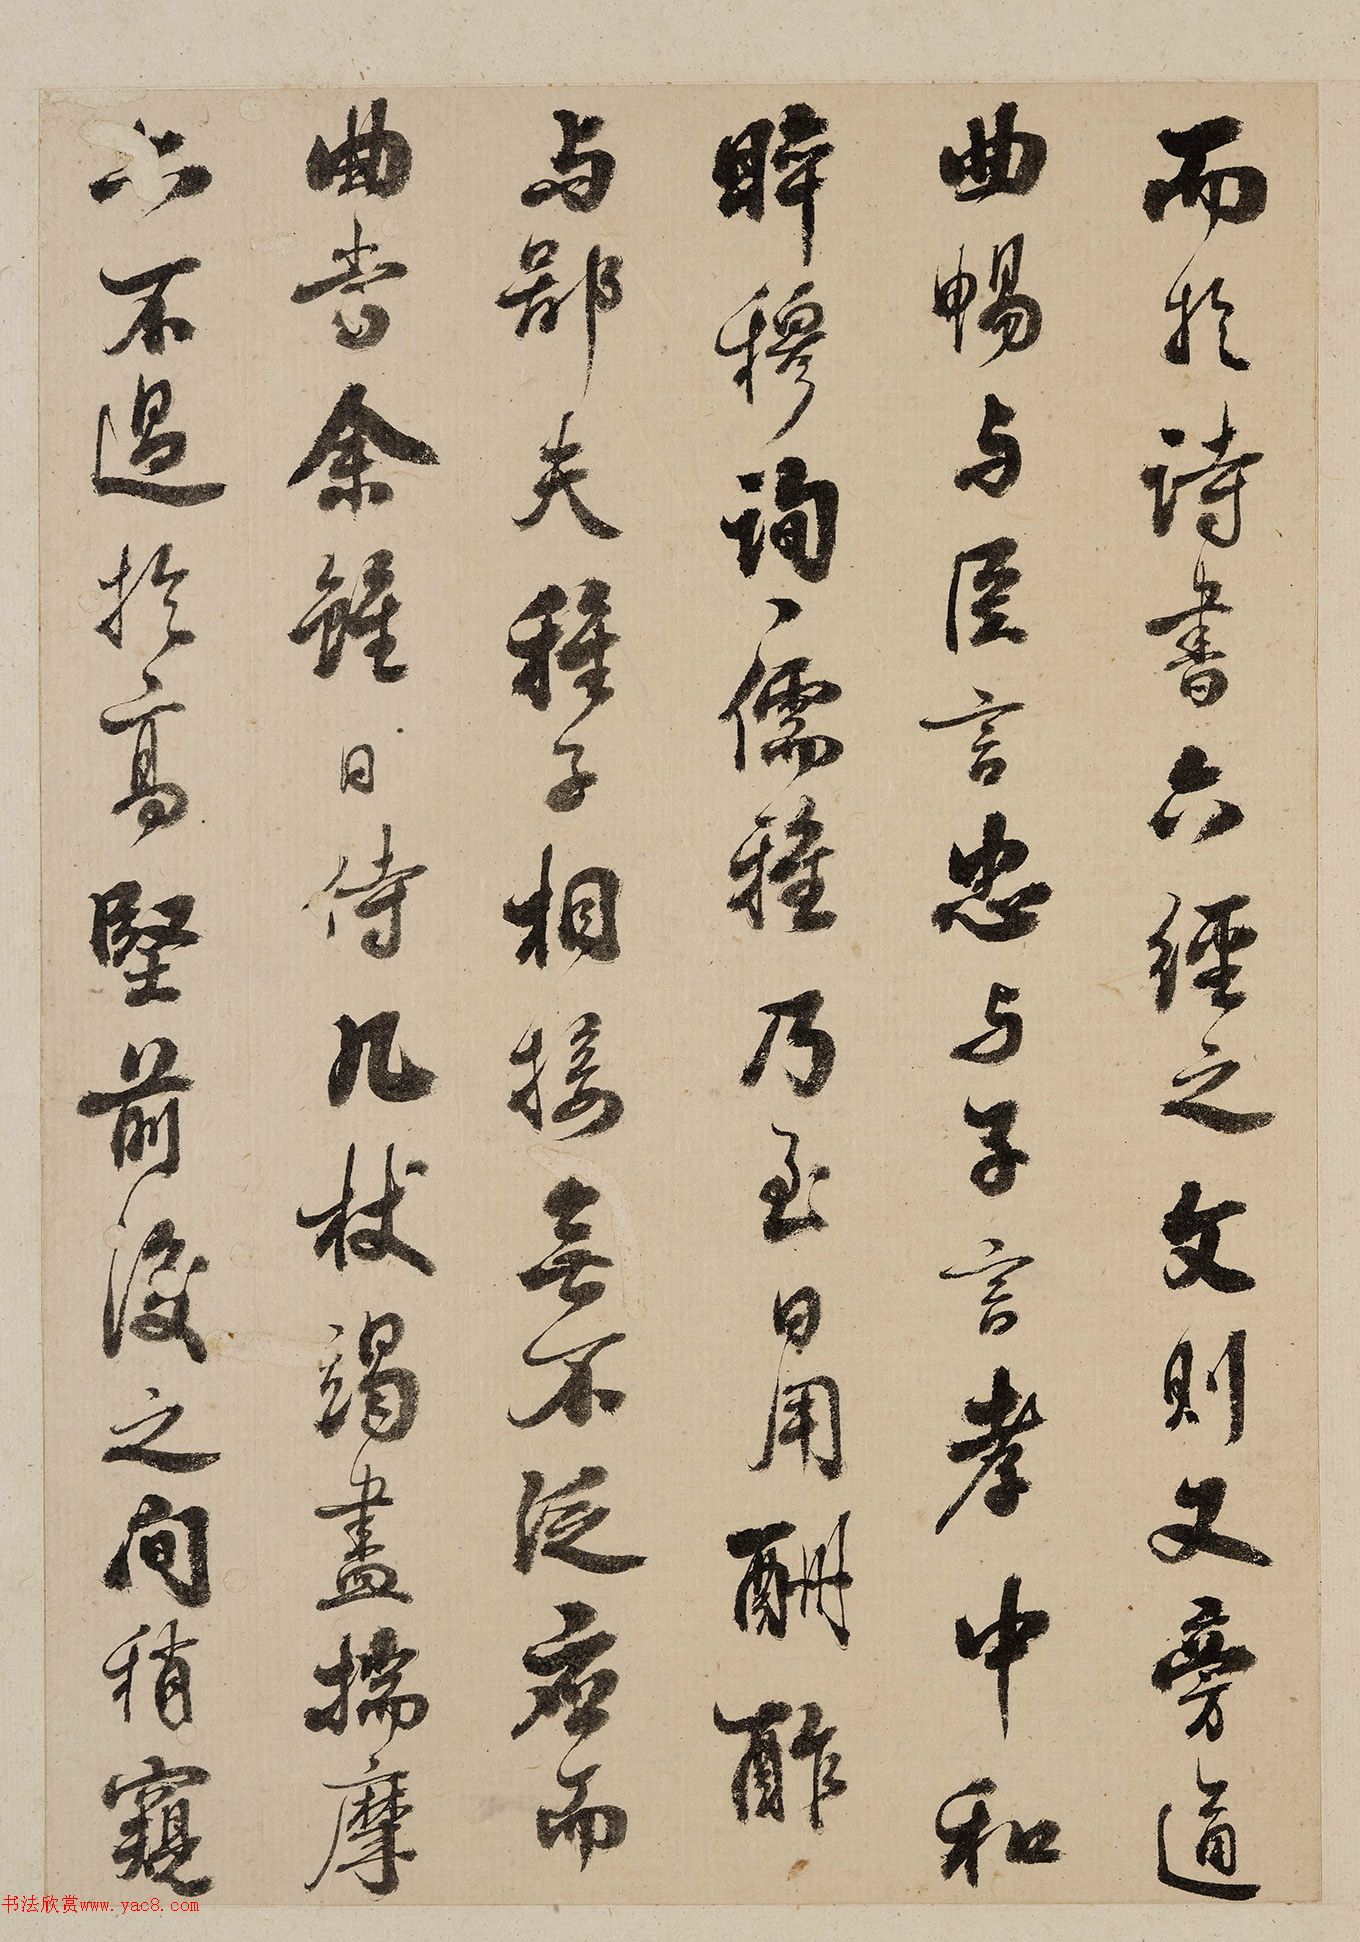 而於詩書六經之文則又旁通
曲暢与臣言忠与子言孝中和
睟穆詢〻儒雅乃至日用酬酢
与鄙夫稚子相接無不泛應而
曲當余雖日侍几杖竭盡揣摩
亦不過於高堅前後之間稍窺
书法欣赏www.yac8.com